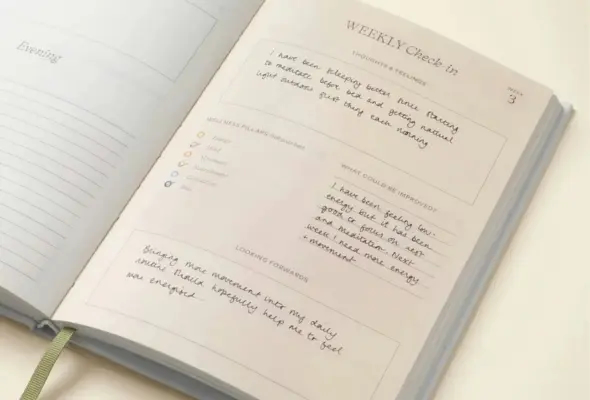 Evening
WEEKLY Check in
WEEK
3
THOUGHTS & FEELINGS
I have been sleeping better since starting
to meditate before bed and getting natural
light outdoors first thing each morning
WELLNESS PILLARS
WHAT COULD BE IMPROVED?
I have been feeling low
energy but it has been
good to focus on rest
and meditation. Next
week I need more energy
+ movement
LOOKING FORWARDS
Bringing more movement into my daily
routine should hopefully help me to feel
more energised